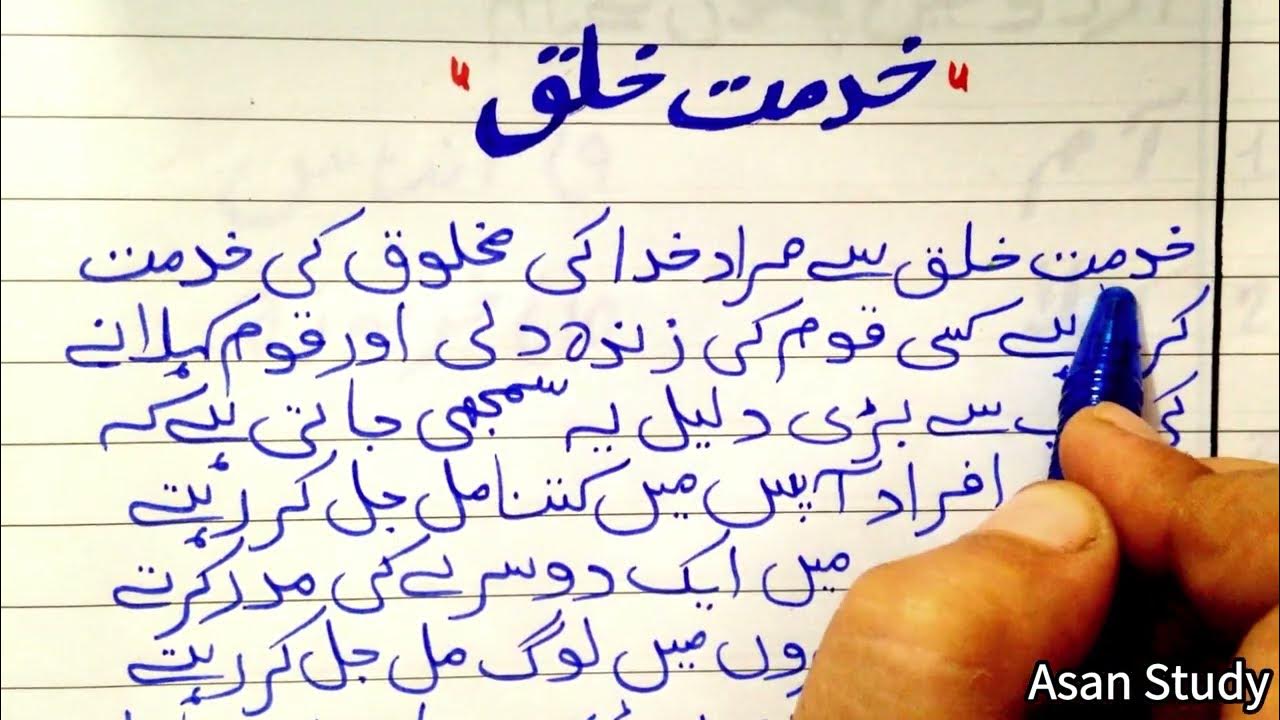 "خدمت خلق"
خدمت خلق سے مراد خدا کی مخلوق کی خدمت
ہے کسی قوم کی زندہ دلی اور قوم کہلانے
سے بڑی دلیل یہ سمجھی جاتی ہے کہ
افراد آپس میں کتنا مل جل کر رہتے
میں ایک دوسرے کی مدد کرتے
میں لوگ مل جل کر رہتے
Asan Study